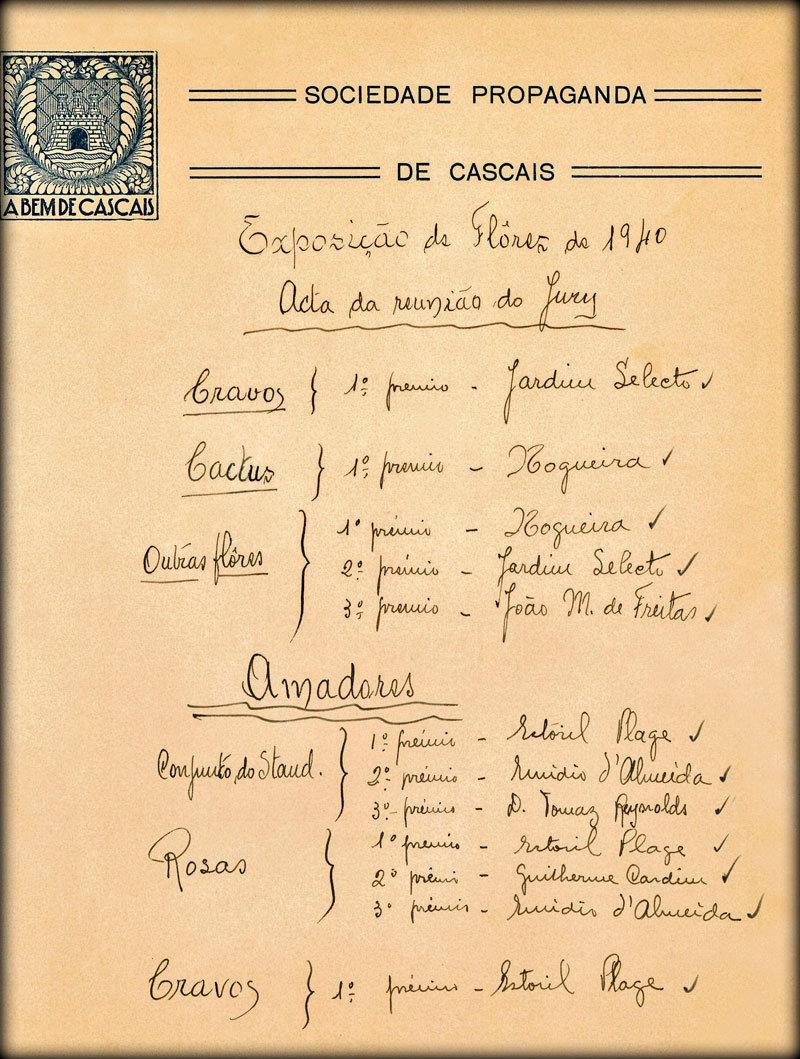 SOCIEDADE PROPAGANDA
DE CASCAIS
A BEM DE CASCAIS
Exposição de Flôres de 1940
Acta da reunião do Jury
Cravos } 1º premio - Jardim Selecto ✓
Cactus } 1º premio - Nogueira ✓
Outras flôres } 1º prémio - Nogueira ✓
2º prémio - Jardim Selecto ✓
3º premio - João M. de Freitas ✓
Amadores
Conjunto do Stand. } 1º prémio - Estoril Plage ✓
2º prémio - Emidio d'Almeida ✓
3º prémio - D. Tomaz Reynolds ✓
Rosas } 1º premio - Estoril Plage ✓
2º prémio - Guilherme Cardim ✓
3º prémio - Emidio d'Almeida ✓
Cravos } 1º prémio - Estoril Plage ✓